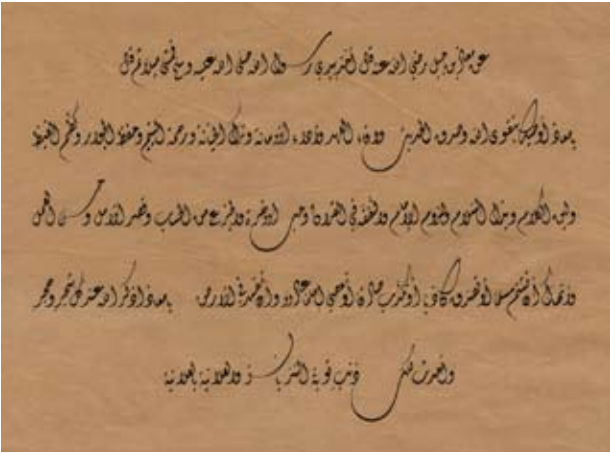 عن معاذ بن جبل رضي الله عنه قال أخذ بيدي رسول الله صلى الله عليه وسلم فمشى ميلا ثم قال
يا معاذ أوصيك بتقوى الله وصدق الحديث ووفاء العهد وأداء الأمانة وترك الخيانة ورحمة اليتيم وحفظ الجوار وكظم الغيظ
ولين الكلام وبذل السلام ولزوم الإمام والتفقه في القرآن وحب الآخرة والجزع من الحساب وقصر الأمل وحسن العمل
وأنهاك أن تشتم مسلما أو تصدق كاذبا أو تكذب صادقا أو تعصي إماما عادلا وأن تفسد في الأرض يا معاذ اذكر الله عند كل شجر وحجر
وأحدث لكل ذنب توبة السر بالسر والعلانية بالعلانية